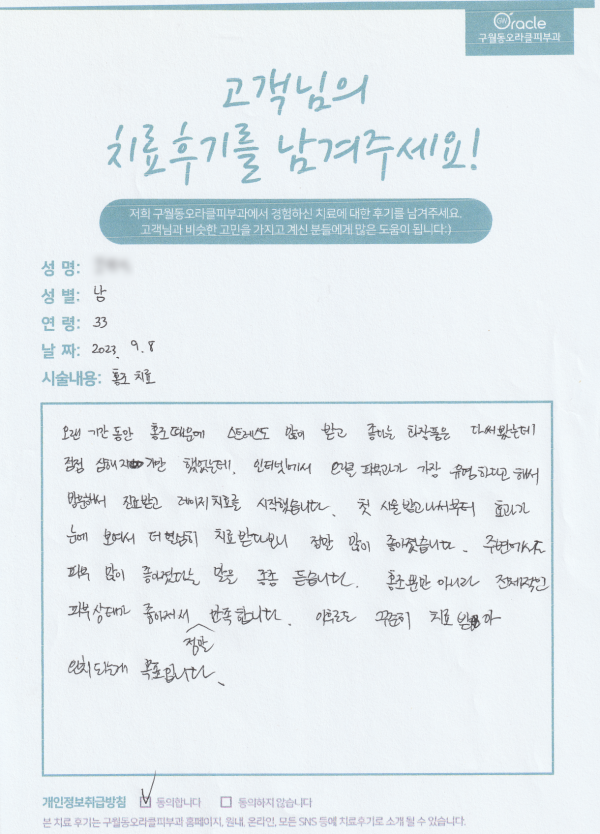 Oracle
구월동오라클피부과
고객님의
치료후기를 남겨주세요!
저희 구월동오라클피부과에서 경험하신 치료에 대한 후기를 남겨주세요.
고객님과 비슷한 고민을 가지고 계신 분들에게 많은 도움이 됩니다:)
성 명:
성 별: 남
연 령: 33
날 짜: 2023. 9. 8
시술내용: 홍조 치료
오랜 기간 동안 홍조때문에 스트레스도 많이 받고 좋다는 화장품은 다써봤는데
점점 심해지기만 했었는데. 인터넷에서 오라클 피부과가 가장 유명하다고 해서
방문해서 진료받고 레이저치료를 시작했습니다. 첫 시술받고나서부터 효과가
눈에 보여서 더 열심히 치료받다보니 정말 많이 좋아졌습니다. 주변에서도
피부 많이 좋아졌다는 말을 종종 듣습니다. 홍조뿐만 아니라 전체적인
피부상태가 좋아져서 정말 만족합니다. 이후로도 꾸준히 치료받아
완치되는게 목표입니다.
개인정보취급방침 ☑ 동의합니다 ☐ 동의하지 않습니다
본 치료 후기는 구월동오라클피부과 홈페이지, 원내, 온라인, 모든 SNS 등에 치료후기로 소개 될 수 있습니다.